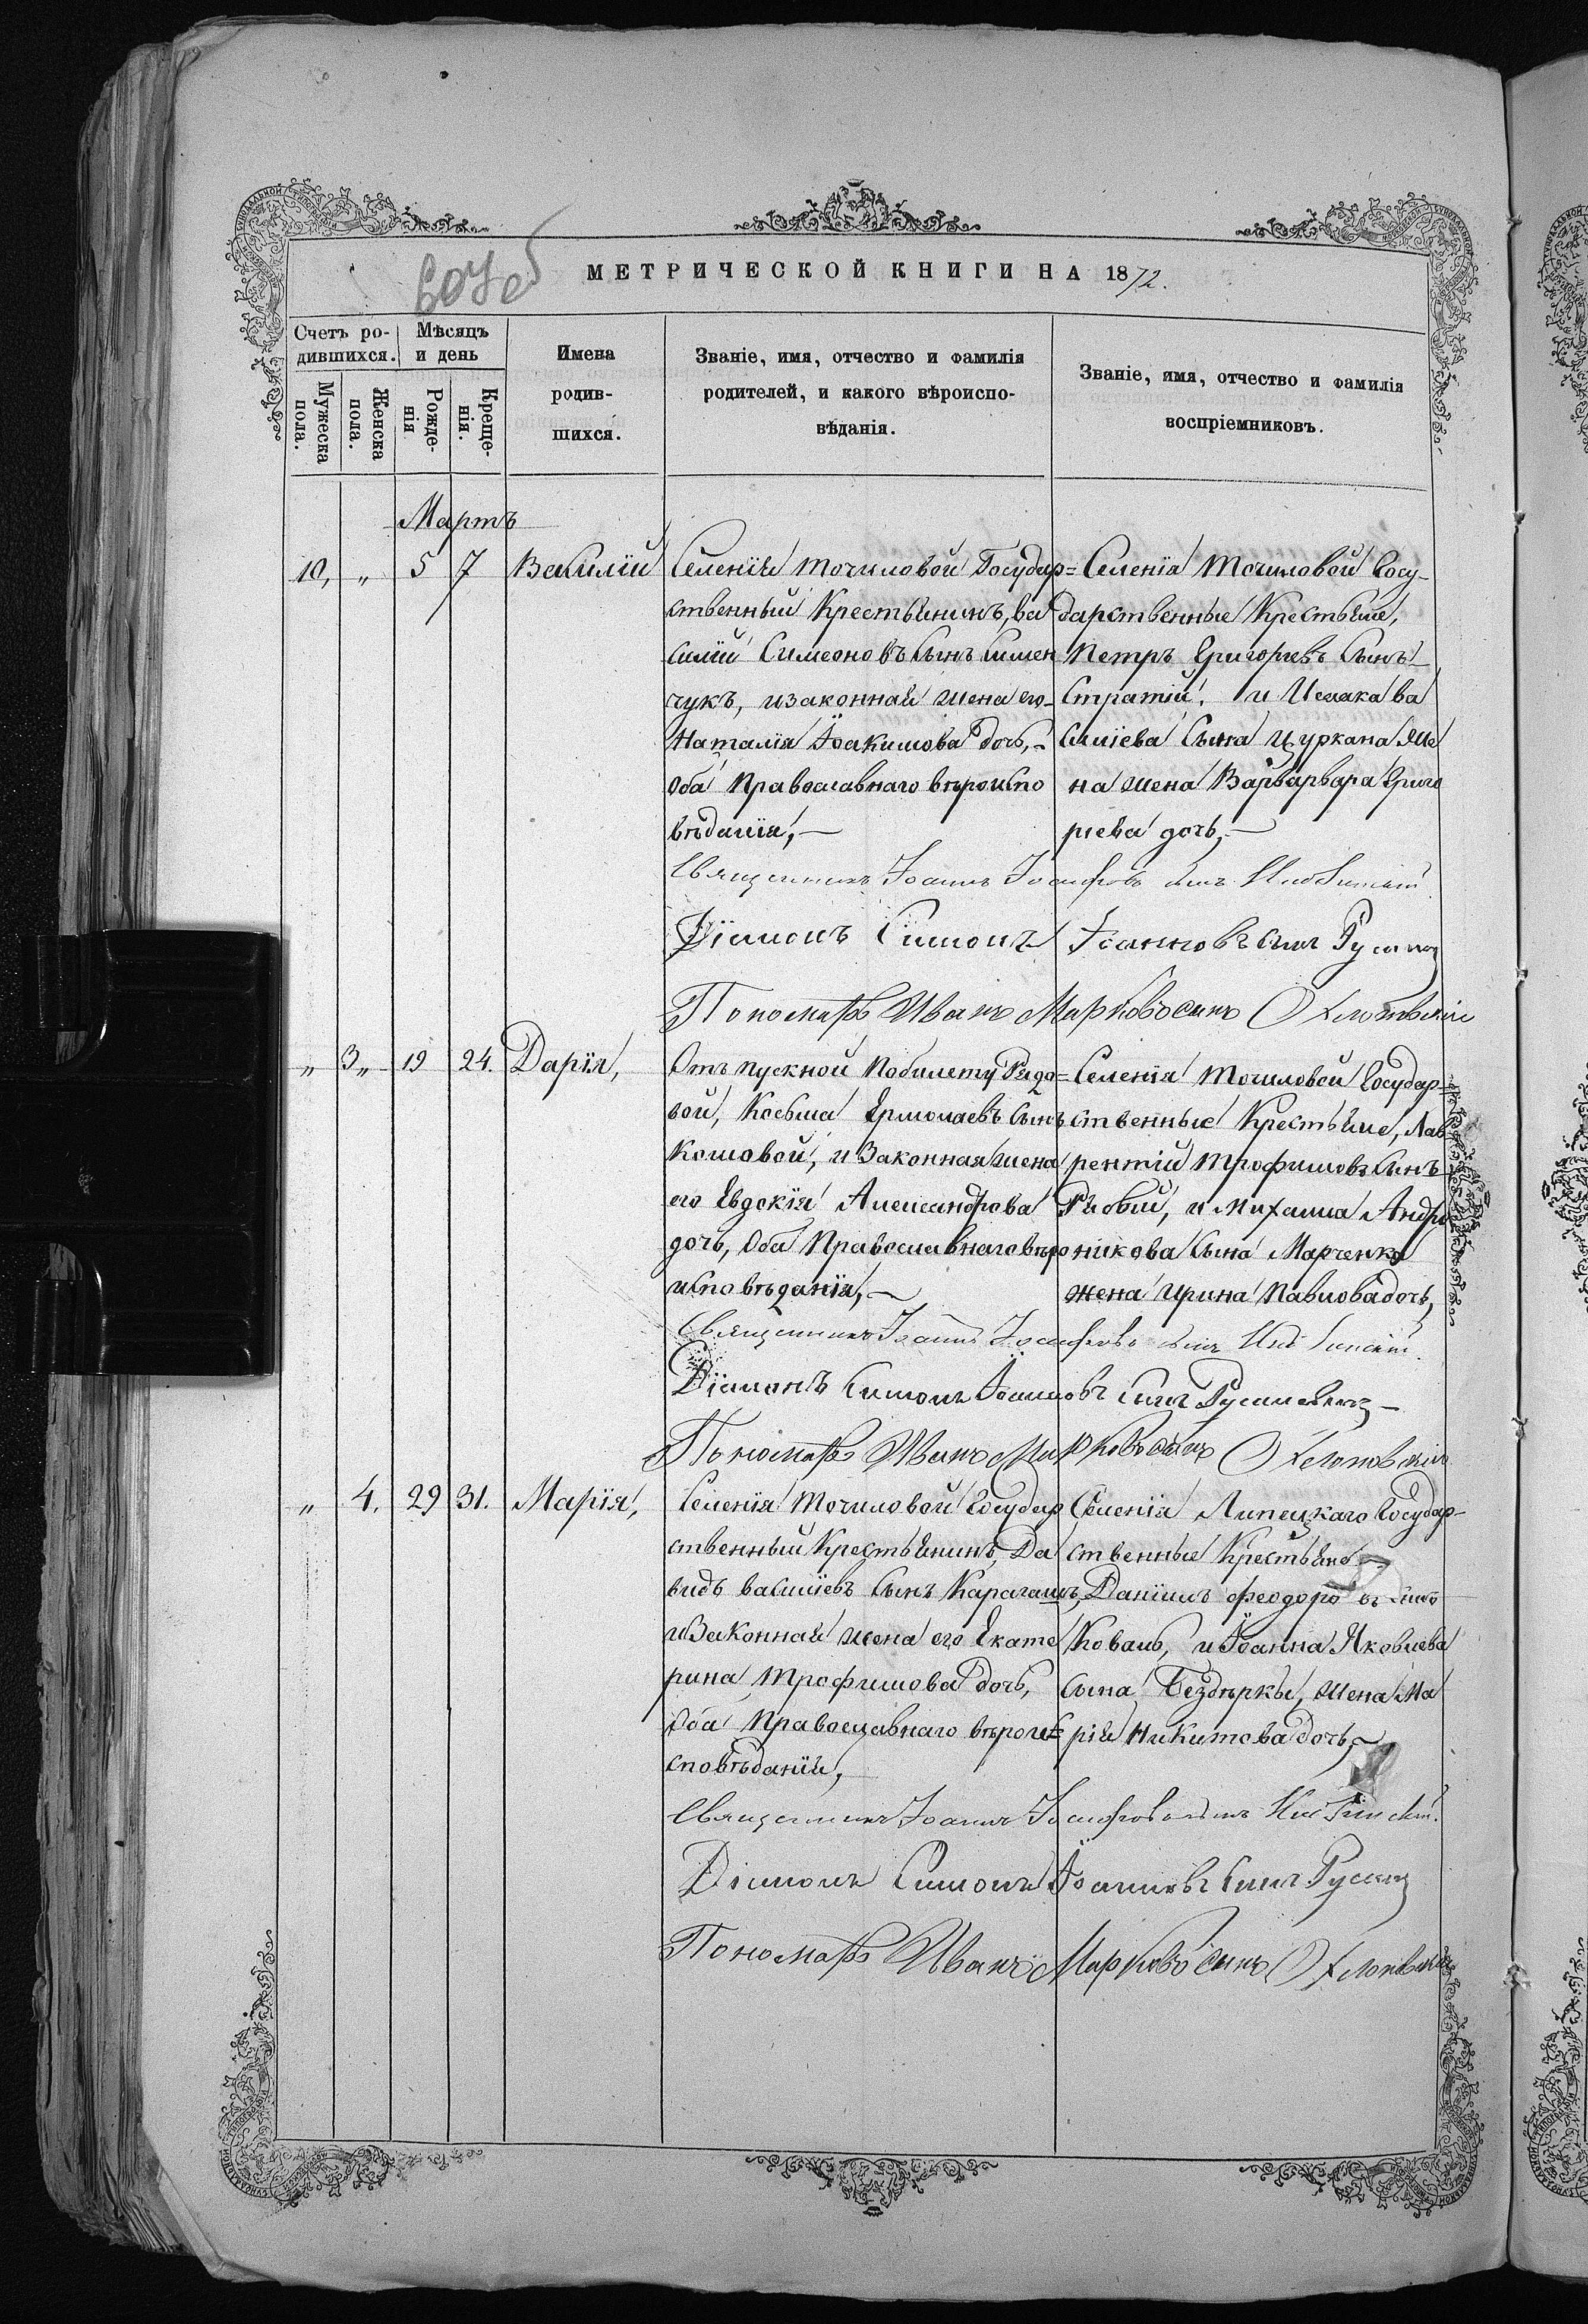 МЕТРИЧЕСКОЙ КНИГИ НА 1872.
Счетъ ро-
дившихся.
Мѣсяцъ
и день
Имена
родив-
шихся.
Званіе, имя, отчество и фамилія
родителей, и какого вѣроиспо-
вѣданія.
Званіе, имя, отчество и фамилія
воспріемниковъ.
Мужеска
пола.
Женска
пола.
Рожде-
нія
Креще-
нія.
Мартъ
10, „ 5 7 Василій
Селенія Точиловой Государ=
ственный Крестьянинъ, Ва
силій Симеоновъ Сынъ Симен
чукъ, изаконная жена его
Наталія Іоакимова дочь,
Оба Православнаго вѣроиспо
вѣданія,
Селенія Точиловой Госу-
дарственные Крестьяне,
Петръ Григорьевъ Сынъ
Стратій, и Исаака Ва
силіева Сына Цуркана Же
на жена Варварвара Григо
рьева дочь,
Священникъ Іоаннъ Іосифовъ сынъ
Діаконъ Симонъ Іоанновъ сынъ
Пономарь Иванъ Марковъ сынъ
„ 3„ 19 24. Дарія,
Отъ пускной Побилету Рядо=
вой, Косьма Ермолаевъ Сынъ
Кошовой, и Законная жена
его Евдокія Александрова
дочь, Оба Православнаго вѣро
исповѣданія,
Селенія Точиловой Государ=
ственные Крестьяне, Лав
рентій Трофимовъ Сынъ
и Михаила Андро
никова Сына Марченка
жена Ирина Павлова дочь,
Священникъ Іоаннъ Іосифовъ сынъ
Діаконъ Симонъ Іоанновъ сынъ
Пономарь Иванъ Марковъ сынъ
„ 4. 29 31. Марія,
Селенія Точиловой Государ
ственный Крестьянинъ, Да
видъ Василіевъ Сынъ Карагашъ,
и Законная жена его Екате
рина Трофимова дочь,
Оба Православнаго вѣрои=
сповѣданія,
Селенія Липецкаго Государ-
ственные Крестьяне
Даніилъ Феодоровъ Сынъ
Коваль, и Іоанна Яковлева
Сына жена Ма
рія Никитова дочь,
Священникъ Іоаннъ Іосифовъ сынъ
Діаконъ Симонъ Іоанновъ сынъ
Пономарь Иванъ Марковъ сынъ